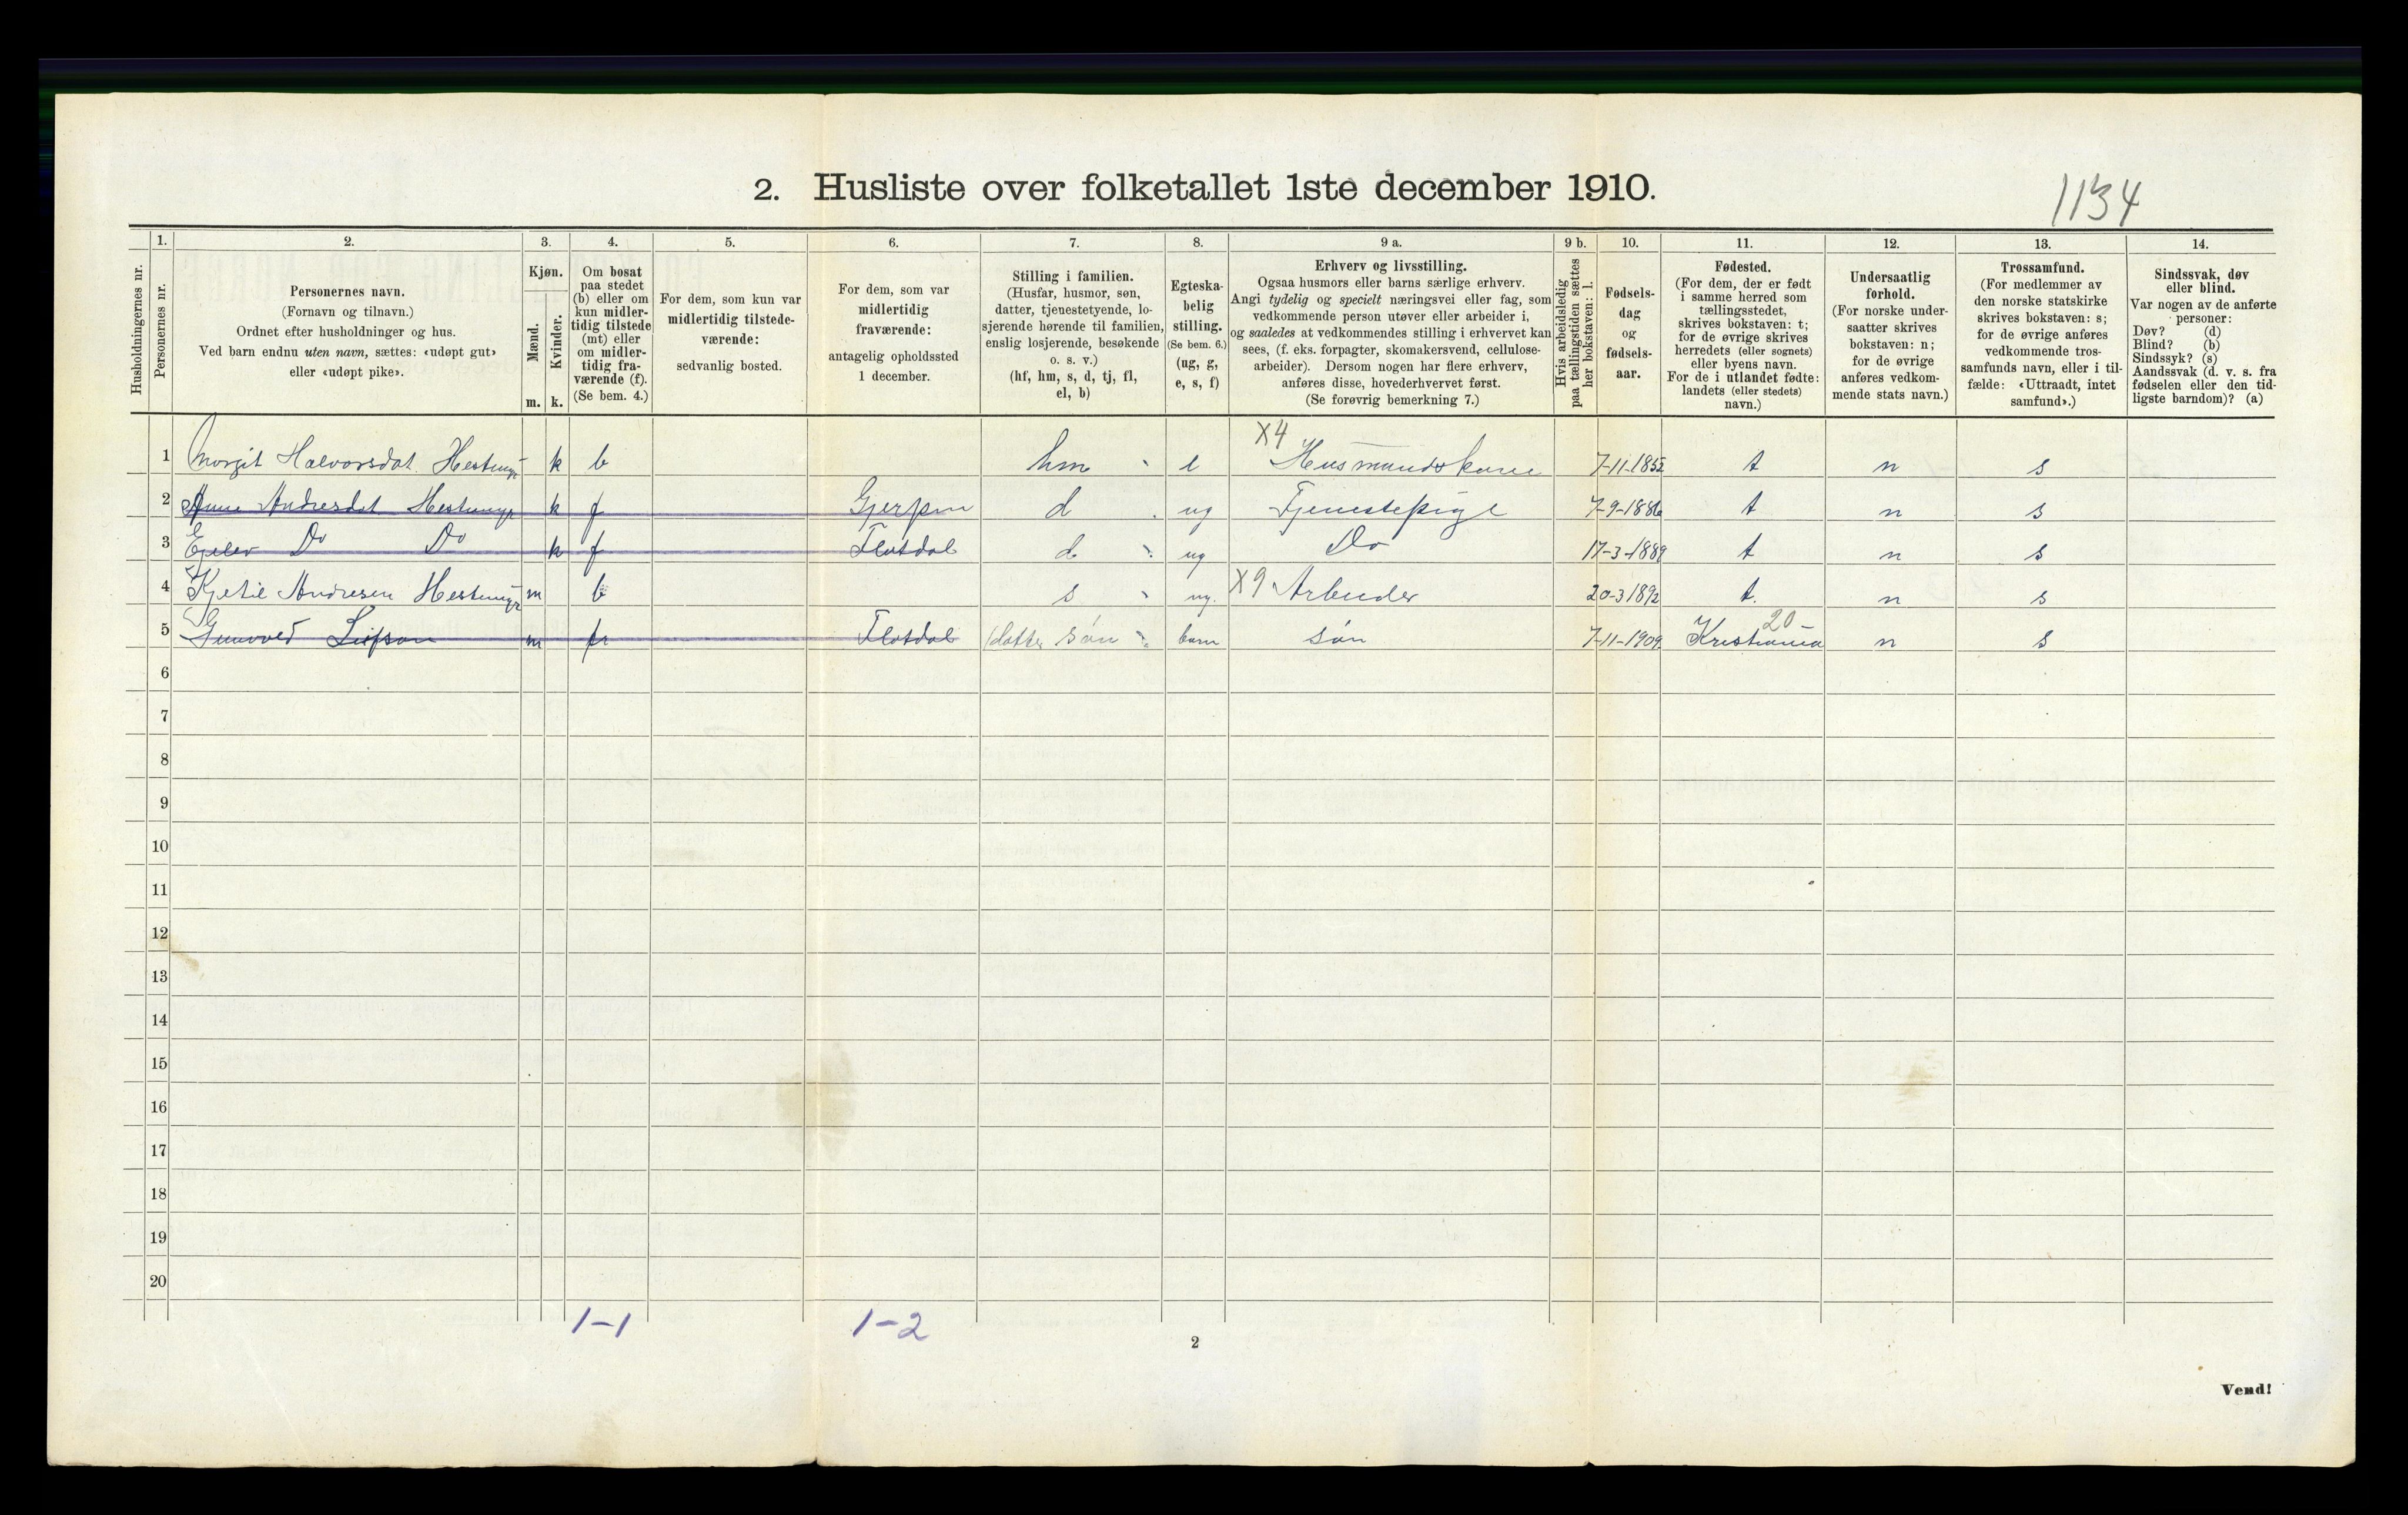 2. Husliste over folketallet 1ste december 1910.
1134
Husholdningernes nr.
1. Personernes nr.
2. Personernes navn. (Fornavn og tilnavn.) Ordnet efter husholdninger og hus. Ved barn endnu uten navn, sættes: «udøpt gut» eller «udøpt pike».
3. Kjøn. Mænd. m. Kvinder. k.
4. Om bosat paa stedet (b) eller om kun midlertidig tilstede (mt) eller om midlertidig fraværende (f). (Se bem. 4.)
5. For dem, som kun var midlertidig tilstedeværende: sedvanlig bosted.
6. For dem, som var midlertidig fraværende: antagelig opholdssted 1 december.
7. Stilling i familien. (Husfar, husmor, søn, datter, tjenestetyende, losjerende hørende til familien, enslig losjerende, besøkende o. s. v.) (hf, hm, s, d, tj, fl, el, b)
8. Egteskabelig stilling. (Se bem. 6.) (ug, g, e, s, f)
9 a. Erhverv og livsstilling. Ogsaa husmors eller barns særlige erhverv. Angi tydelig og specielt næringsvei eller fag, som vedkommende person utøver eller arbeider i, og saaledes at vedkommendes stilling i erhvervet kan sees, (f. eks. forpagter, skomakersvend, cellulosearbeider). Dersom nogen har flere erhverv, anføres disse, hovederhvervet først. (Se forøvrig bemerkning 7.)
9 b. Hvis arbeidsledig paa tællingstiden sættes her bokstaven: l.
10. Fødselsdag og fødselsaar.
11. Fødested. (For dem, der er født i samme herred som tællingsstedet, skrives bokstaven: t; for de øvrige skrives herredets (eller sognets) eller byens navn. For de i utlandet fødte: landets (eller stedets) navn.)
12. Undersaatlig forhold. (For norske undersaatter skrives bokstaven: n; for de øvrige anføres vedkommende stats navn.)
13. Trossamfund. (For medlemmer av den norske statskirke skrives bokstaven: s; for de øvrige anføres vedkommende trossamfunds navn, eller i tilfælde: «Uttraadt, intet samfund».)
14. Sindssvak, døv eller blind. Var nogen av de anførte personer: Døv? (d) Blind? (b) Sindssyk? (s) Aandssvak (d. v. s. fra fødselen eller den tidligste barndom)? (a)
1 Margit Halvorsdat. Hestmyr k b hm e X4 Husmandskone 7-11-1852 t n s
2 Anne Andresdat Hestmyr k f Gjerpen d ug Tjenestepige 7-9-1886 t n s
3 Do Do k f Flatdal d ug Do 17-3-1889 t n s
4 Kjetil Andresen Hestmyr m b s ug. X9 Arbeider 20-3 1892 t. n s
5 m f Flatdal datter søn barn søn 7-11-1909. Kristiania 20 n s
6
7
8
9
10
11
12
13
14
15
16
17
18
19
20
1-1 1-2
2
Vend!